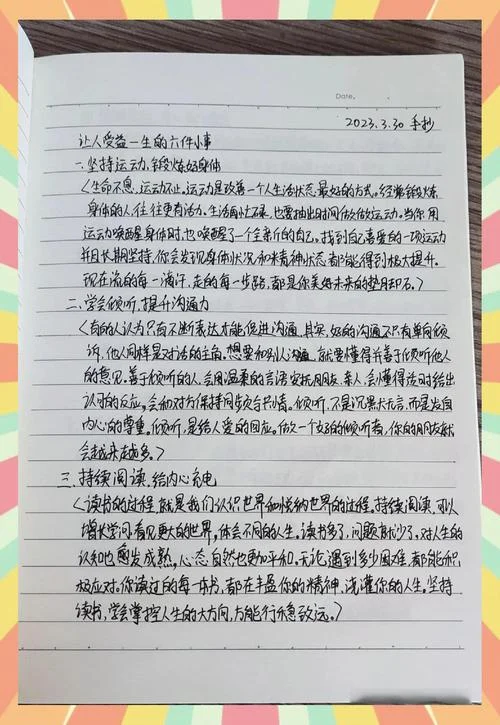 Date.
2023.3.30 手抄
让人受益一生的六件小事
一、坚持运动,锻炼好身体
〈生命不息,运动不止。运动是改善一个人生活状态最好的方式。经常锻炼
身体的人,往往更有活力。生活再忙碌,也要抽出时间做做运动。当你用
运动唤醒身体时,也唤醒了一个全新的自己。找到自己喜爱的一项运动
并且长期坚持,你会发现身体状况和精神状态都能得到极大提升。
现在流的每一滴汗,走的每一步路,都是你美好未来的垫脚石。〉
二、学会倾听,提升沟通力
〈有的人认为只有不断表达才能促进沟通,其实,好的沟通不只有单向倾
诉,他人同样是对话的主角。想要和别人沟通,就要懂得并善于倾听他人
的意见。善于倾听的人,会用温柔的言语安抚朋友、亲人,会懂得适时给出
认可的反应,会和对方保持同步的情。倾听,不是沉默无言,而是发自
内心的尊重。倾听,是给人爱的回应。做一个好的倾听者,你的朋友就
会越来越多。〉
三、持续阅读,给内心充电
〈读书的过程,就是我们认识世界和悦纳世界的过程。持续阅读,可以
增长学问,看见更大的世界,体会不同的人生。读书多了,问题就少了。对人生的
认知也愈发成熟,心态自然也更加平和。无论遇到多少困难,都能积
极应对。你读过的每一本书,都在丰盈你的精神,浇灌你的人生。坚持
读书,学会掌控人生的大方向,方能行稳致远。〉